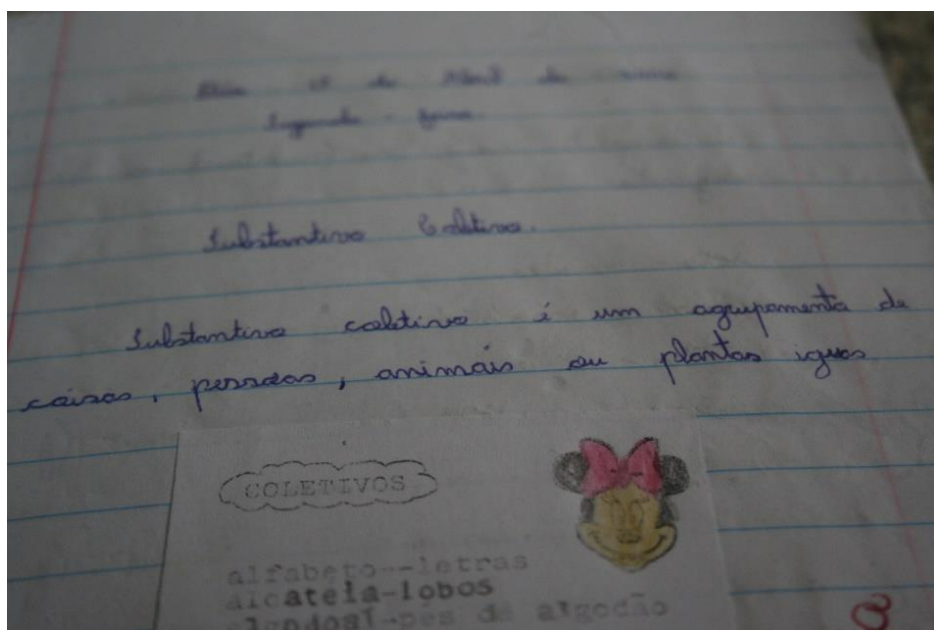 de Abril de
Segunda - feira
Substantivo Coletivo.
Substantivo coletivo é um agrupamento de
coisas, pessoas, animais ou plantas iguas
COLETIVOS
alfabeto--letras
alcateia-lobos
algodoal-pés de algodão